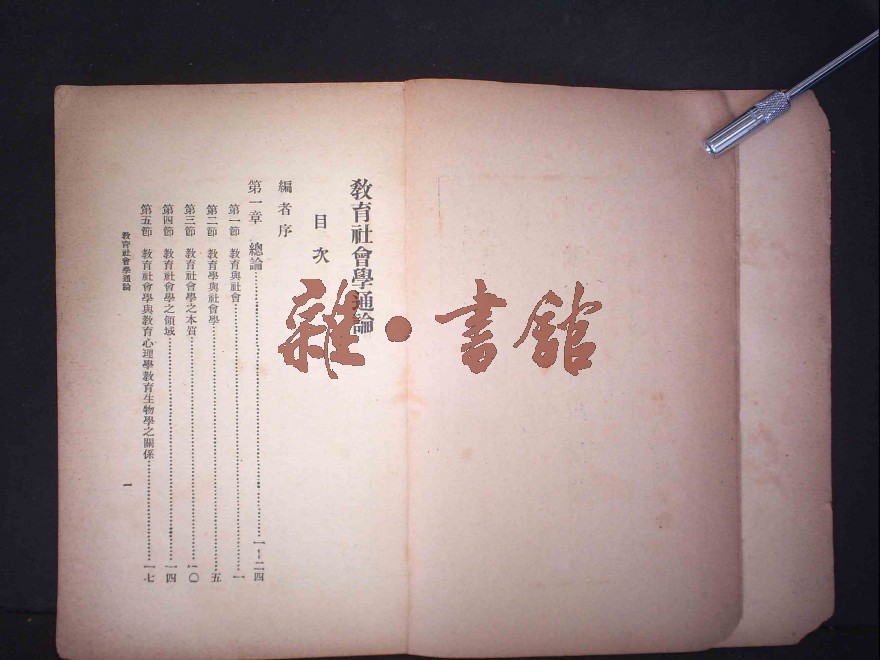 教育社會學通論
目次
編者序
第一章 總論……一—二四
第一節 教育與社會……一
第二節 教育學與社會學……五
第三節 教育社會學之本質……一〇
第四節 教育社會學之領域……一四
第五節 教育社會學與教育心理學教育生物學之關係……一七
教育社會學通論
一
雜·書館